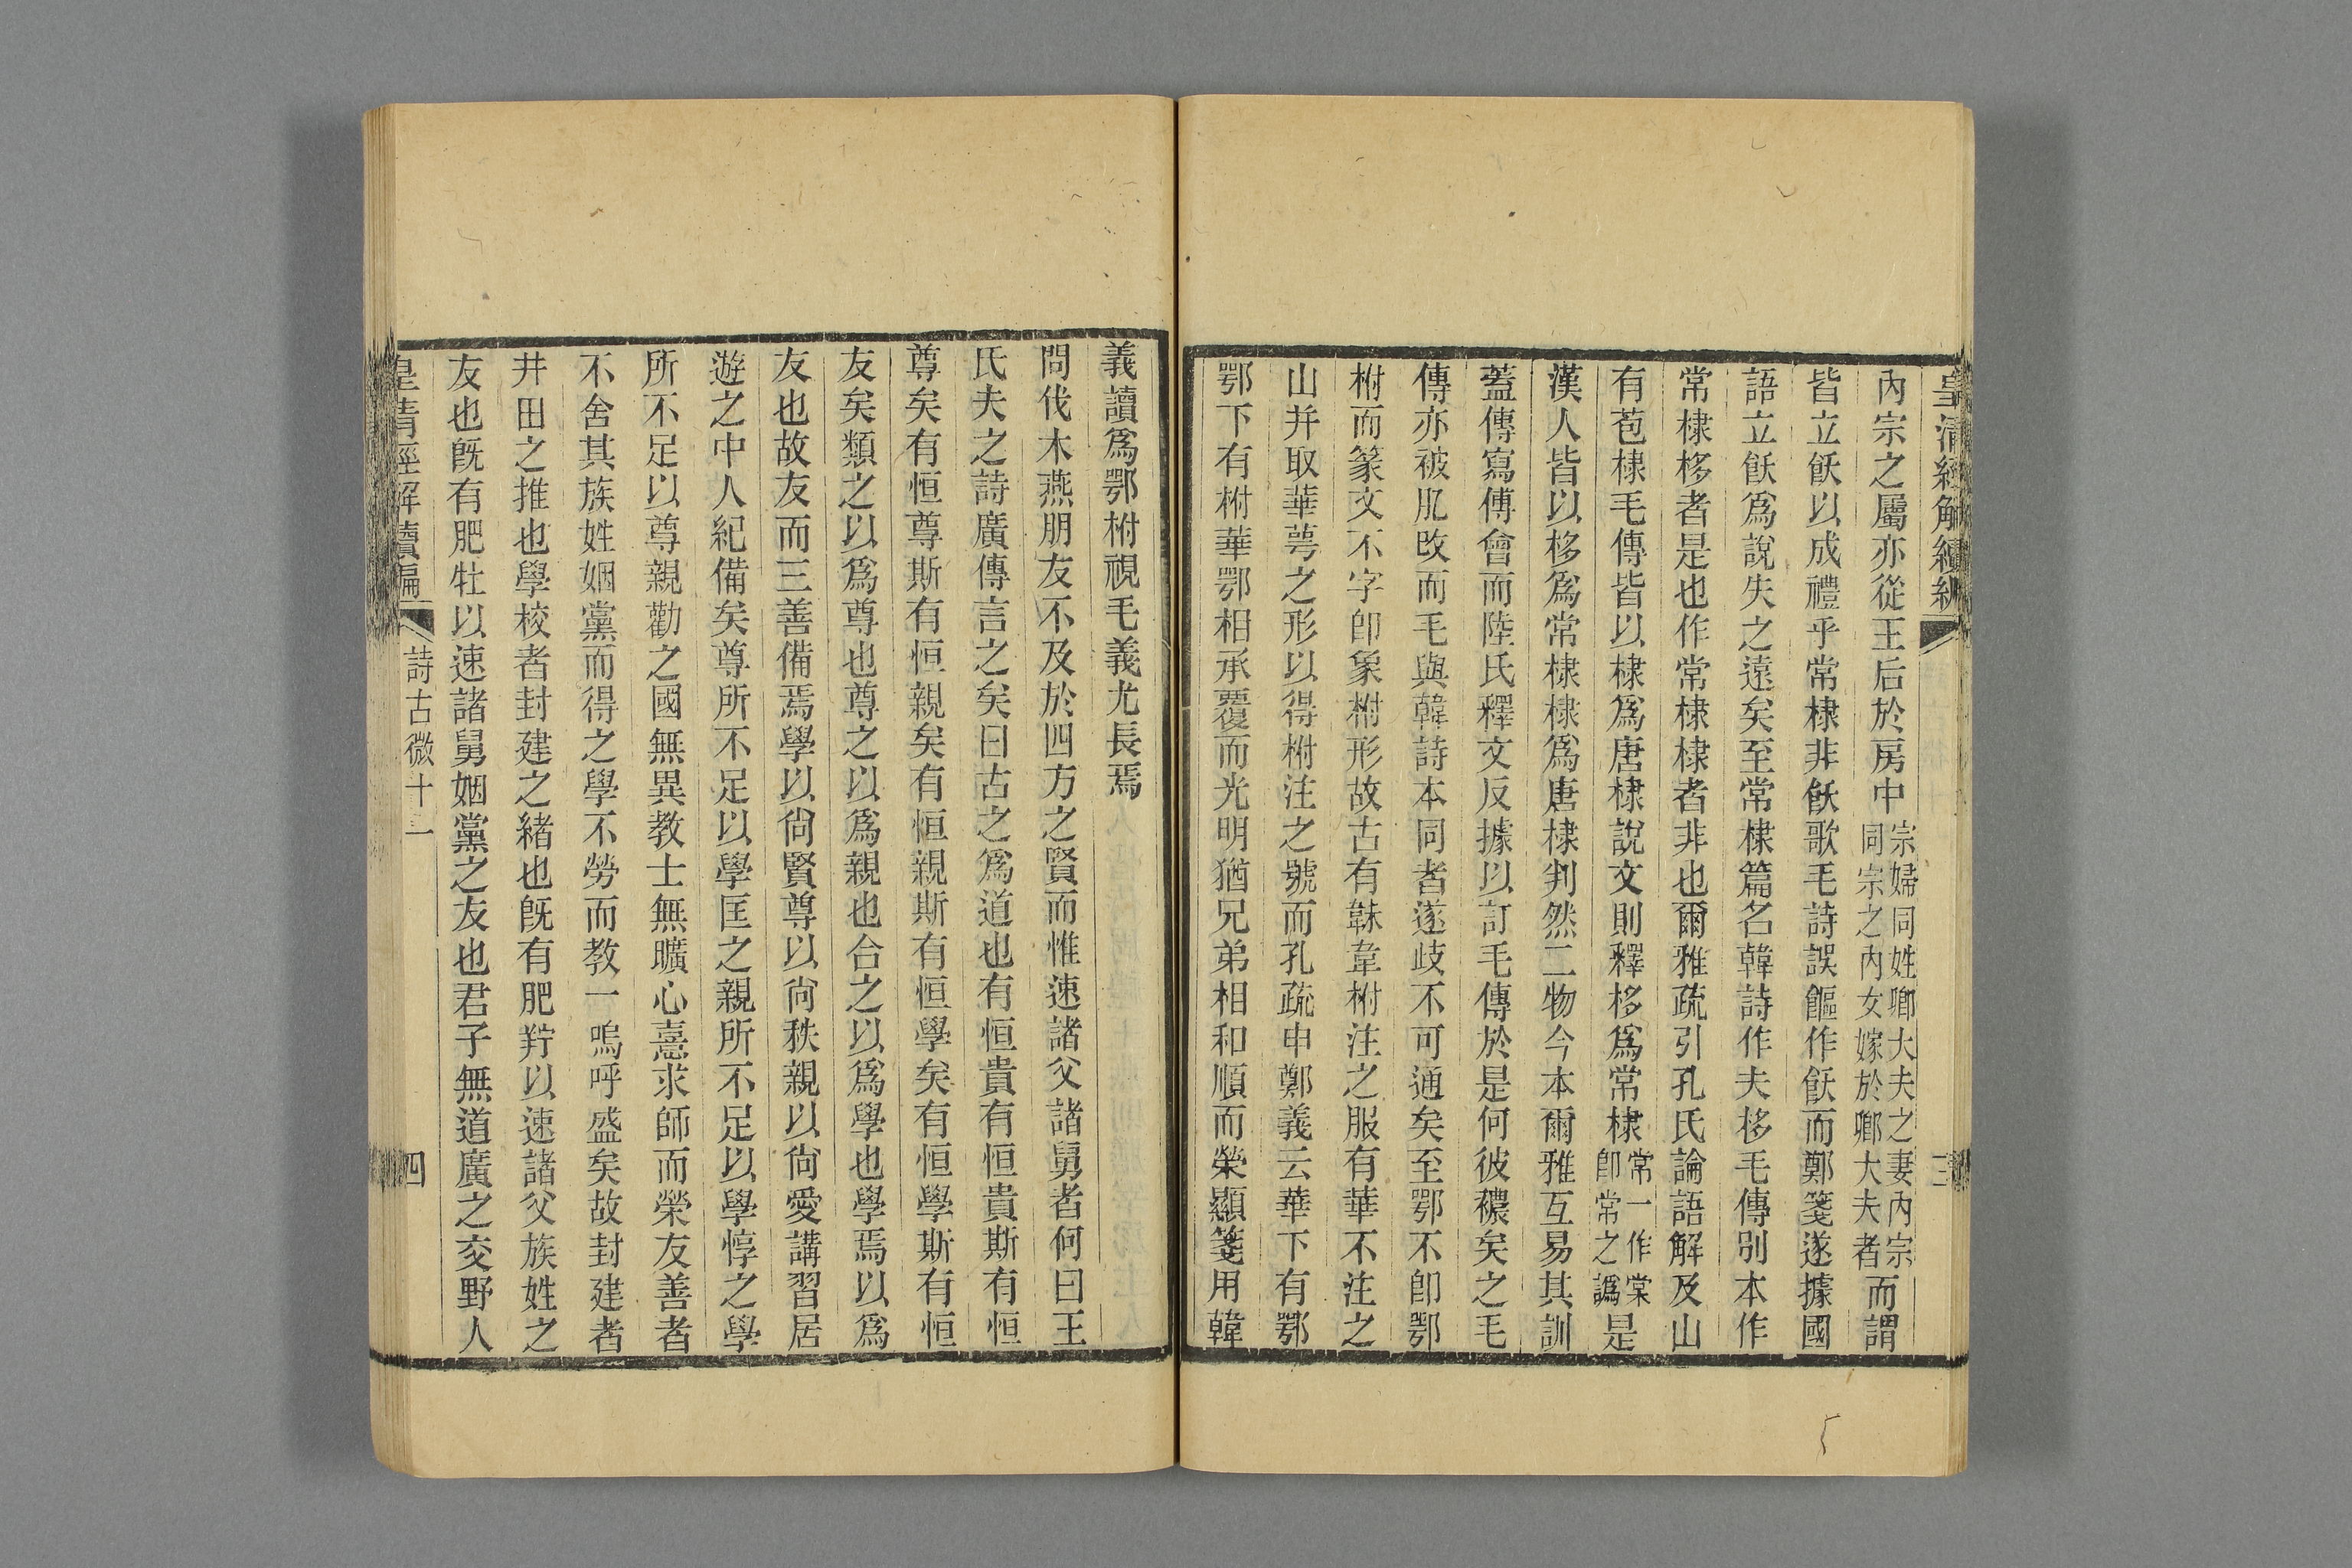 皇清經解續編
三
內宗之屬亦從王后於房中宗婦同姓鄉大夫之妻內宗同宗之內女嫁於鄉大夫者而謂
皆立飫以成禮乎常棣非飫歌毛詩誤饇作飫而鄭箋遂據國
語立飫爲說失之遠矣至常棣篇名韓詩作夫栘毛傳別本作
常棣栘者是也作常棣棣者非也爾雅疏引孔氏論語解及山
有苞棣毛傳皆以棣爲唐棣說文則釋栘爲常棣常一作棠卽常之譌是
漢人皆以栘爲常棣棣爲唐棣判然二物今本爾雅互易其訓
蓋傳寫傅會而陸氏釋文反據以訂毛傳於是何彼穠矣之毛
傳亦被肊改而毛與韓詩本同者遂歧不可通矣至鄂不卽鄂
柎而篆文不字卽象柎形故古有韎韋柎注之服有華不注之
山并取華萼之形以得柎注之號而孔疏申鄭義云華下有鄂
鄂下有柎華鄂相承覆而光明猶兄弟相和順而榮顯箋用韓
義讀爲鄂柎視毛義尤長焉
問伐木燕朋友不及於四方之賢而惟速諸父諸舅者何曰王
氏夫之詩廣傳言之矣曰古之爲道也有恒貴有恒貴斯有恒
尊矣有恒尊斯有恒親矣有恒親斯有恒學矣有恒學斯有恒
友矣類之以爲尊也尊之以爲親也合之以爲學也學焉以爲
友也故友而三善備焉學以尙賢尊以尙秩親以尙愛講習居
遊之中人紀備矣尊所不足以學匡之親所不足以學惇之學
所不足以尊親勸之國無異教士無曠心憙求師而榮友善者
不舍其族姓姻黨而得之學不勞而教一嗚呼盛矣故封建者
井田之推也學校者封建之緖也旣有肥羜以速諸父族姓之
友也旣有肥牡以速諸舅姻黨之友也君子無道廣之交野人
皇淸經解續編
詩古微十一
四